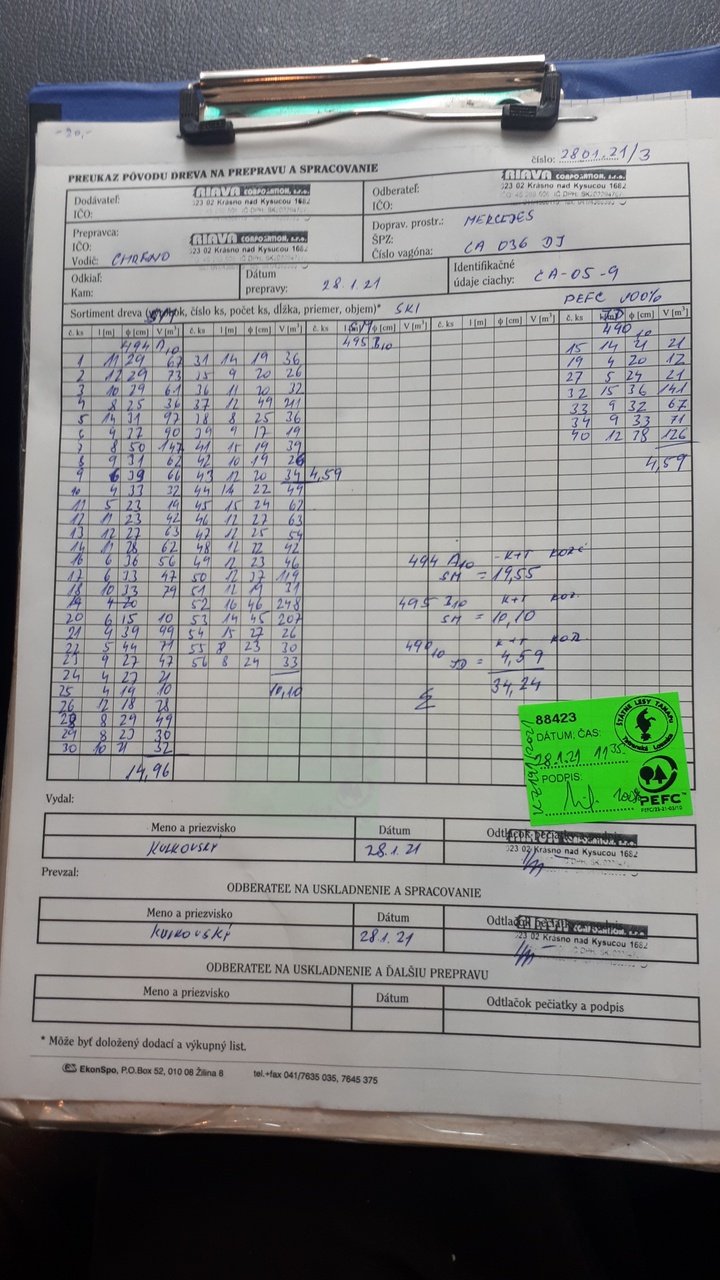 -20,-
číslo: 2801.21/3
PREUKAZ PÔVODU DREVA NA PREPRAVU A SPRACOVANIE
Dodávateľ: RIAVA CORPORATION, s.r.o. Odberateľ: RIAVA CORPORATION, s.r.o.
IČO: 023 02 Krásno nad Kysucou 1682 IČO: 023 02 Krásno nad Kysucou 1682
Prepravca: RIAVA CORPORATION, s.r.o. Doprav. prostr.: MERCEDES
IČO: 023 02 Krásno nad Kysucou 1682 ŠPZ:
Vodič: Číslo vagóna: CA 036 DJ
Odkiaľ: Dátum Identifikačné
Kam: prepravy: 28.1.21 údaje ciachy: ČA-05-9
Sortiment dreva (výrobok, číslo ks, počet ks, dĺžka, priemer, objem)* SKI PEFC 100%
č. ks l [m] ϕ [cm] V [m³] č. ks l [m] ϕ [cm] V [m³] č. ks l [m] ϕ [cm] V [m³] č. ks l [m] ϕ [cm] V [m³] č. ks l [m] ϕ [cm] V [m³]
494 A10 495 B10 490 10
1 11 29 67 31 14 19 36 15 14 21 21
2 12 29 73 35 9 20 26 19 4 20 12
3 10 29 61 36 11 20 32 27 5 24 21
4 8 25 36 37 12 49 211 32 15 36 141
5 14 31 97 38 8 25 36 33 9 32 67
6 4 90 39 9 17 19 34 9 33 71
7 8 50 147 41 15 19 39 40 12 38 126
8 9 31 62 42 10 19 26 4,59
9 6 39 66 43 12 20 34 4,59
10 4 33 32 44 14 22 49
11 5 23 19 45 15 24 62
12 11 23 42 46 12 27 63
13 12 27 63 47 12 25 54
14 11 28 62 48 12 22 42
16 6 36 56 49 12 23 46 494 A10 - K+T
17 6 33 47 50 12 37 119 SM = 19,55
18 10 33 79 51 12 19 31
19 4 20 52 16 46 248 495 B10 K+T
20 6 15 10 53 14 45 207 SM = 10,10
21 4 39 99 54 15 27 26
22 5 44 71 55 8 23 30 490 10 K+T
23 9 27 47 56 8 24 33 JD = 4,59
24 4 27 21 34,24
25 4 19 10 10,10 Σ
26 12 18 28
28 8 29 49
29 8 23 30
30 10 21 32
14,96
88423
DÁTUM, ČAS:
28.1.21 11 35
PODPIS:
ŠTÁTNE LESY TANAPU
Tatranská Lomnica
PEFC
PEFC/22-21-03/10
Vydal:
Meno a priezvisko Dátum Odtlačok pečiatky a podpis
KULKOVSKÝ 28.1.21 023 02 Krásno nad Kysucou 1682
Prevzal:
ODBERATEĽ NA USKLADNENIE A SPRACOVANIE
Meno a priezvisko Dátum Odtlačok pečiatky a podpis
KULKOVSKÝ 28.1.21 023 02 Krásno nad Kysucou 1682
ODBERATEĽ NA USKLADNENIE A ĎALŠIU PREPRAVU
Meno a priezvisko Dátum Odtlačok pečiatky a podpis
* Môže byť doložený dodací a výkupný list.
EkonSpo, P.O.Box 52, 010 08 Žilina 8 tel.+fax 041/7635 035, 7645 375